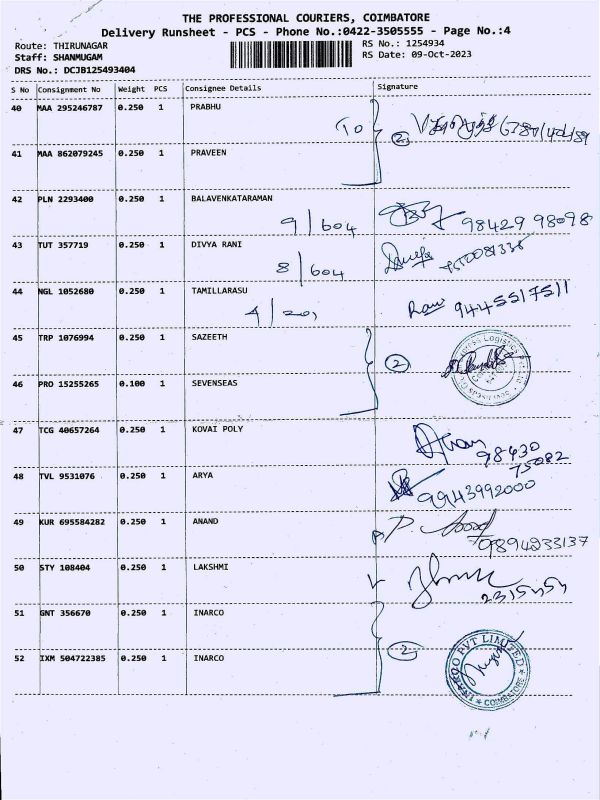 THE PROFESSIONAL COURIERS, COIMBATORE
Delivery Runsheet - PCS - Phone No.:0422-3505555 - Page No.:4
Route: THIRUNAGAR
RS No.: 1254934
Staff: SHANMUGAM
RS Date: 09-Oct-2023
DRS No.: DCJB125493404
S No Consignment No Weight PCS Consignee Details Signature
40 MAA 295246787 0.250 1 PRABHU
To 2
41 MAA 862079245 0.250 1 PRAVEEN
42 PLN 2293400 0.250 1 BALAVENKATARAMAN
9/604 98429 98098
43 TUT 357719 0.250 1 DIVYA RANI
8/604
44 NGL 1052680 0.250 1 TAMILLARASU
Ram 9445517511
45 TRP 1076994 0.250 1 SAZEETH
2
46 PRO 15255265 0.100 1 SEVENSEAS
47 TCG 40657264 0.250 1 KOVAI POLY
98430
75082
48 TVL 9531076 0.250 1 ARYA
9943992000
49 KUR 695584282 0.250 1 ANAND
P.
9894233137
50 STY 108404 0.250 1 LAKSHMI
51 GNT 356670 0.250 1 INARCO
2
INARCO PVT LIMITED
COIMBATORE
52 IXM 504722385 0.250 1 INARCO